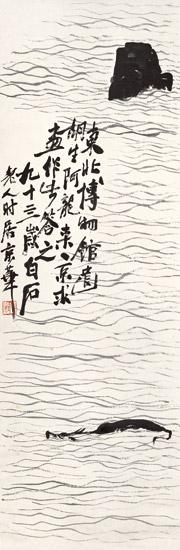 東北博物館周
桐生阿龍来京求
畫作此答之
九十三歲白石
老人時居京華